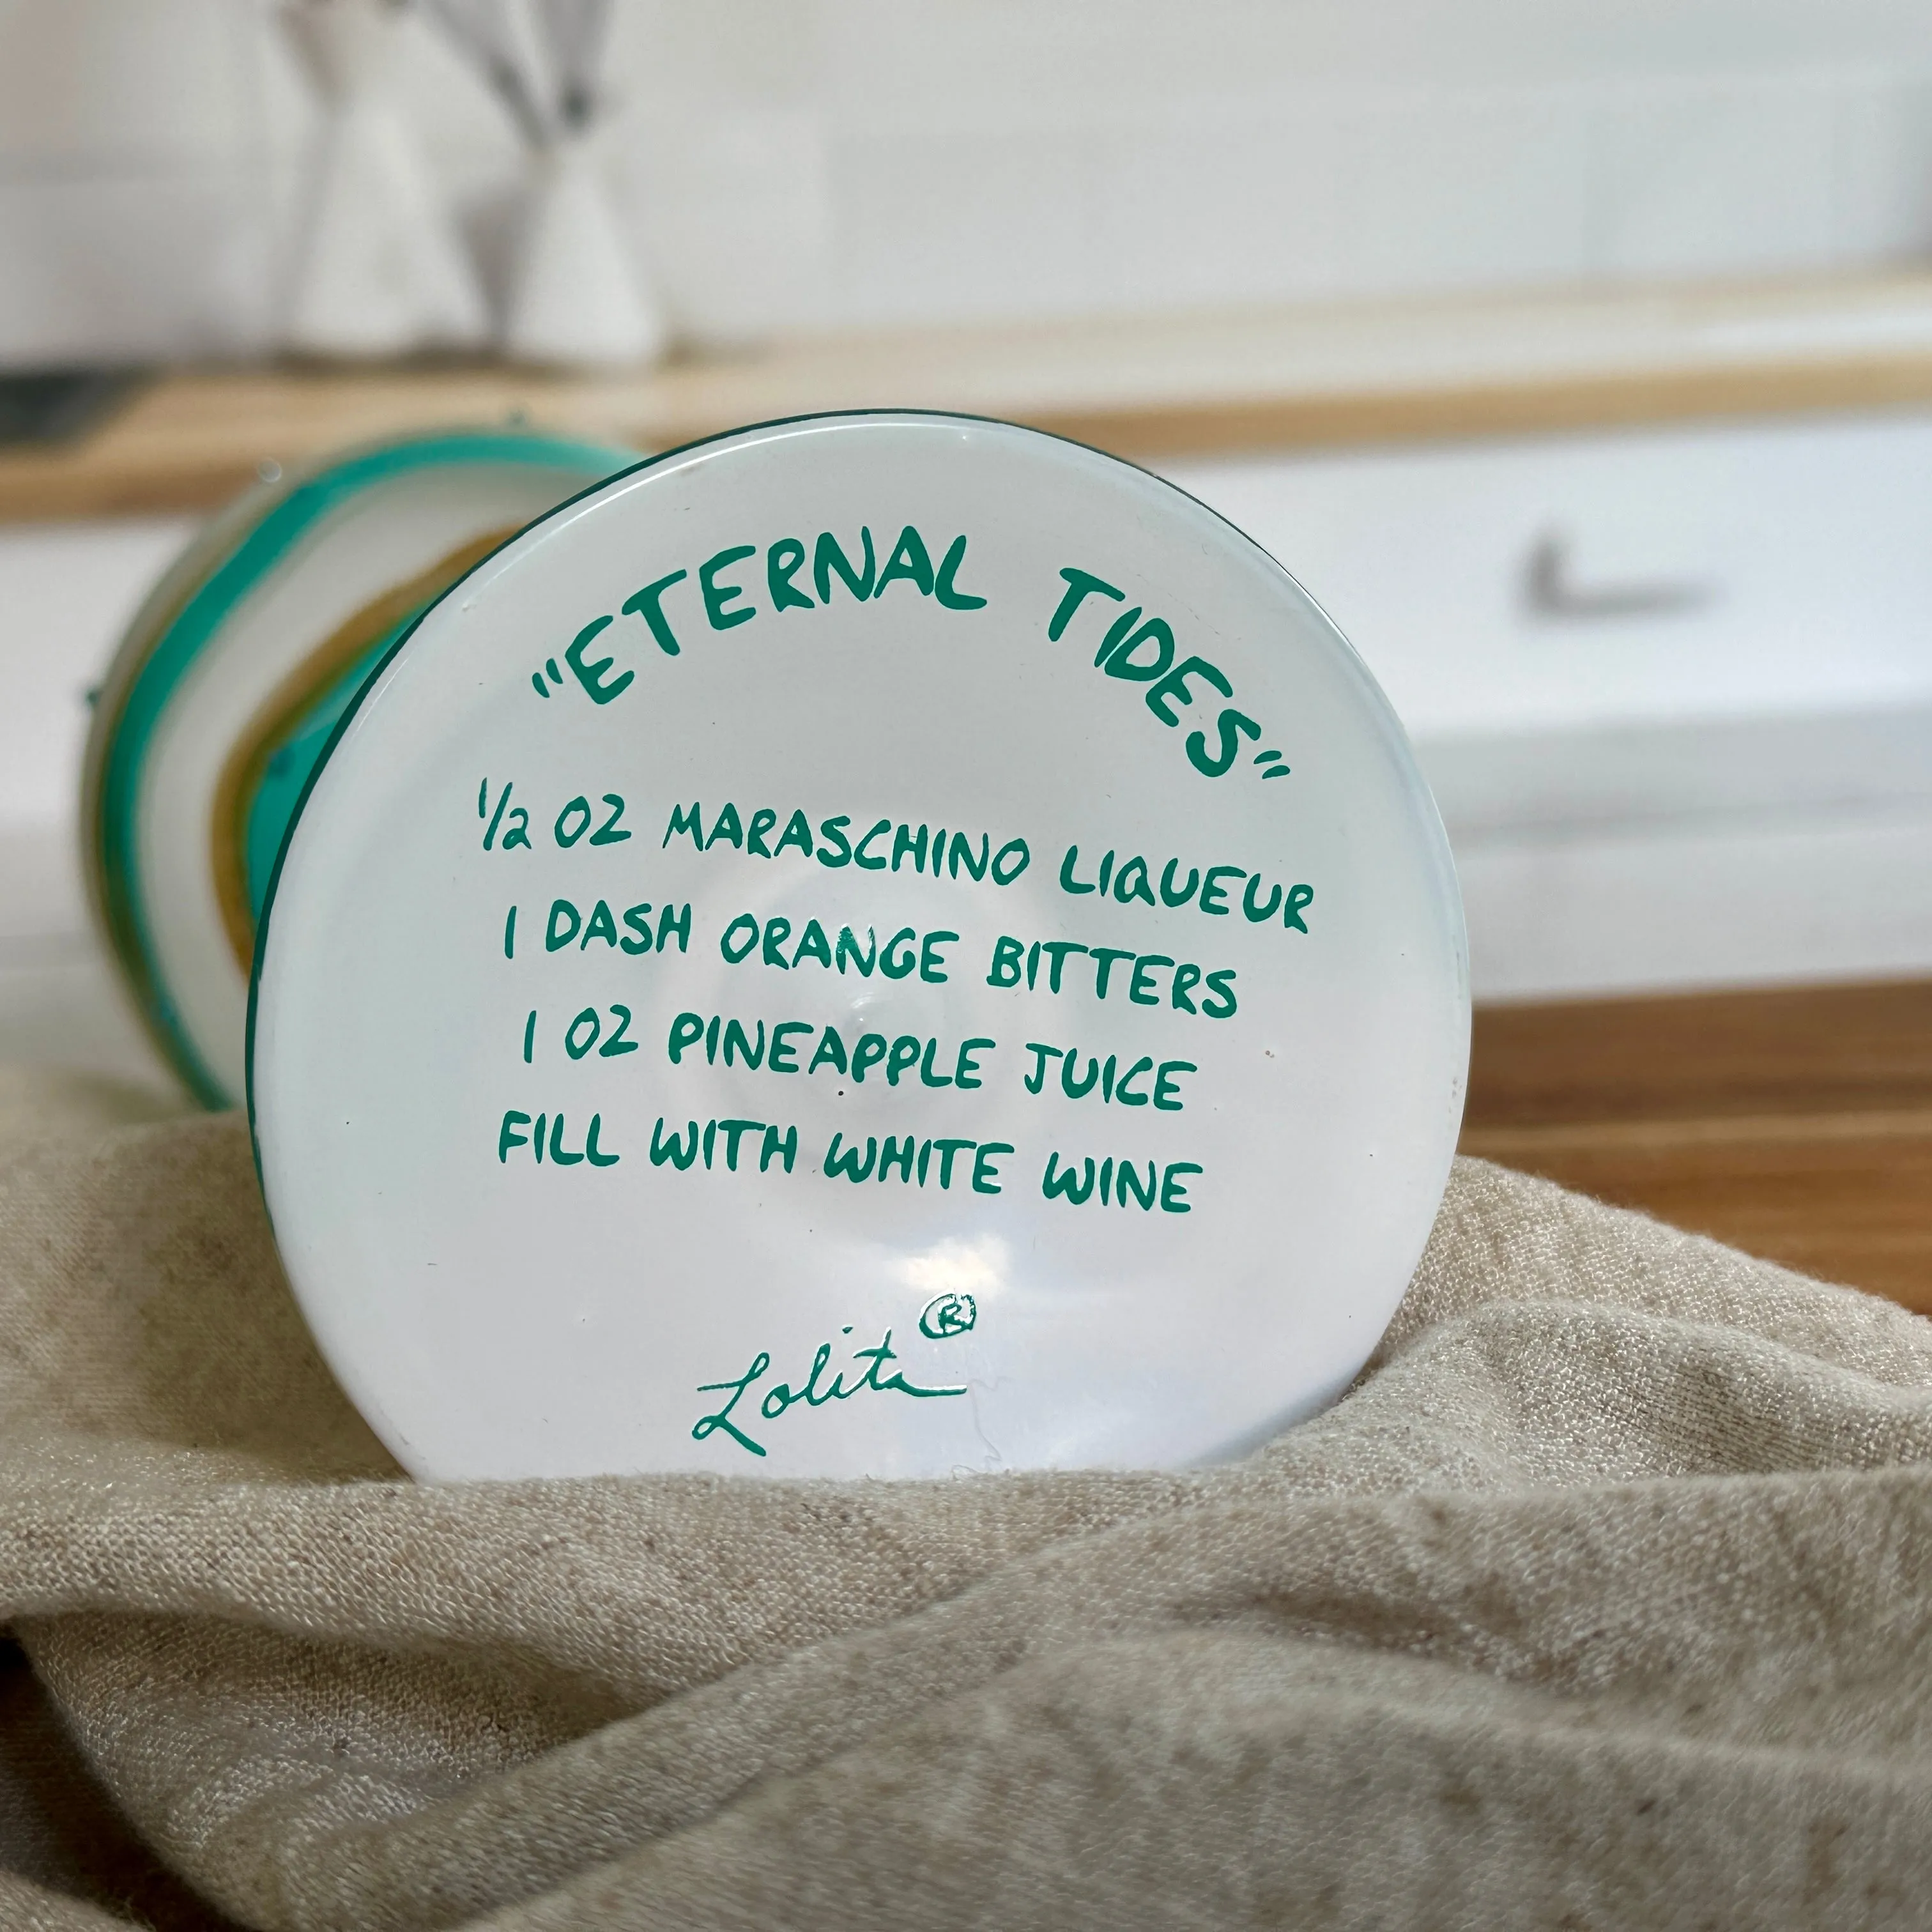 "ETERNAL TIDES"
1/2 OZ MARASCHINO LIQUEUR
1 DASH ORANGE BITTERS
1 OZ PINEAPPLE JUICE
FILL WITH WHITE WINE
Lolita®